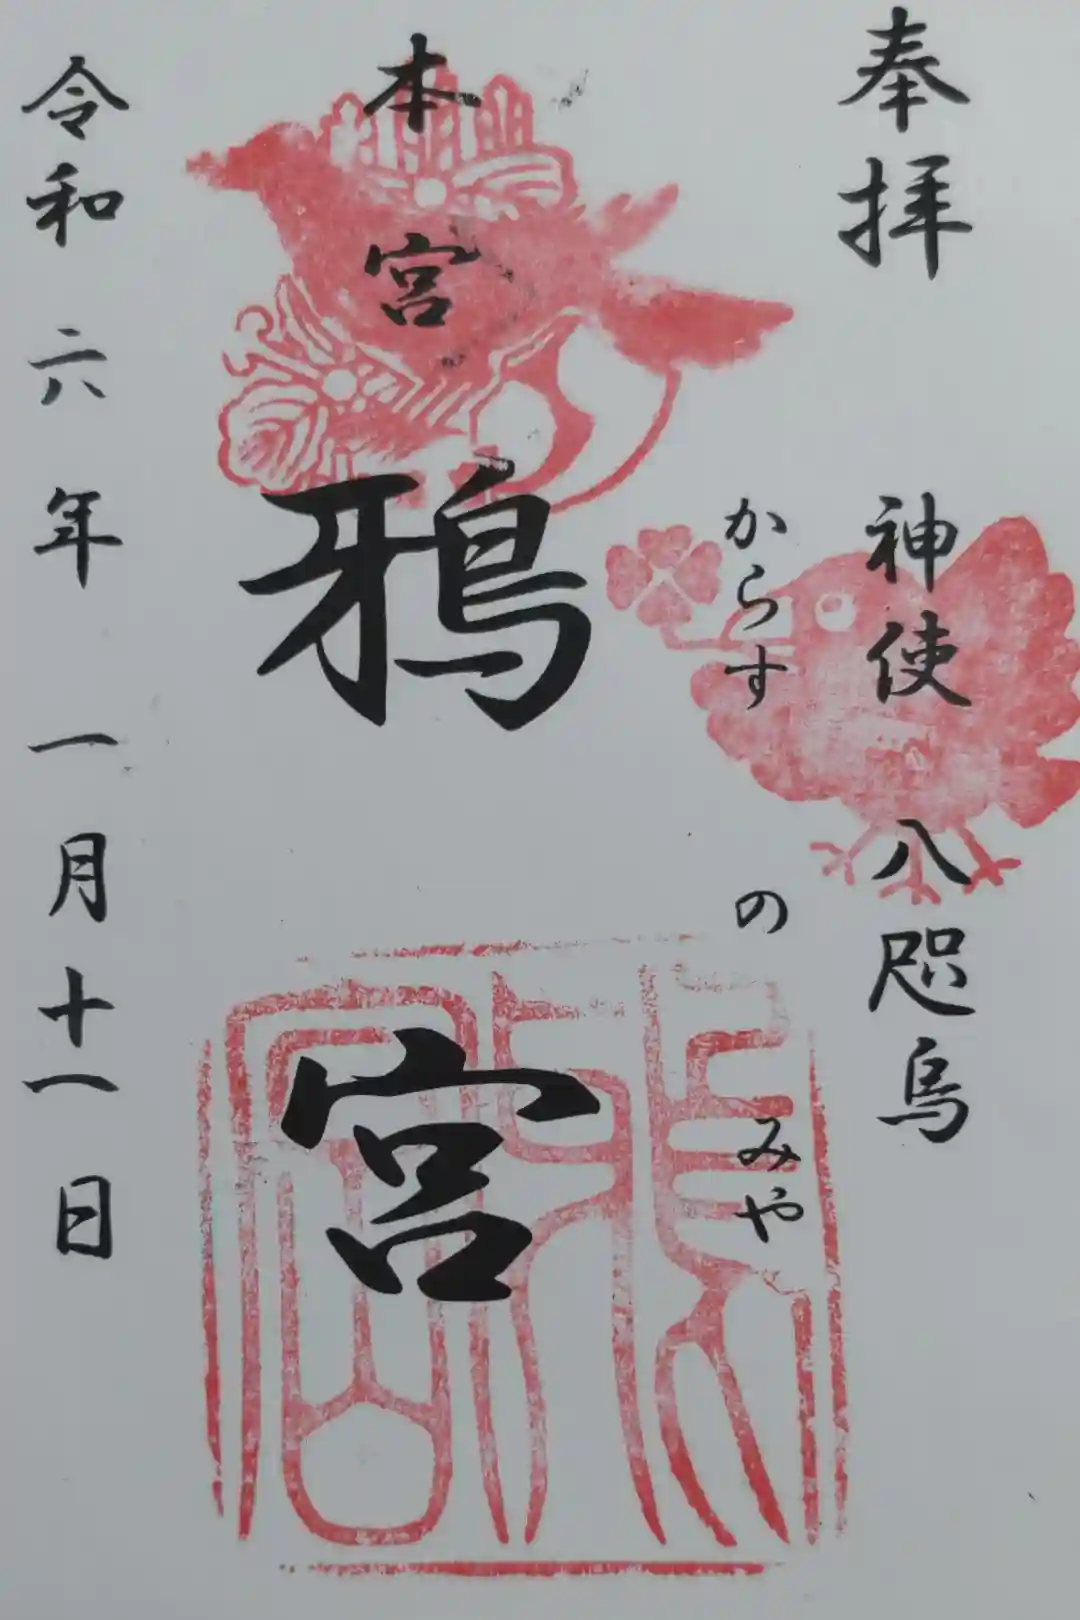 奉拝
神使 八咫烏
からす の みや
本宮
鴉宮
令和六年一月十一日